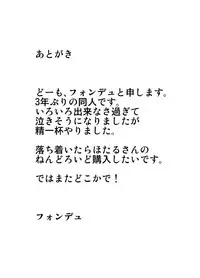 あとがき
どーも、フォンデュと申します。
3年ぶりの同人です。
いろいろ出来なさ過ぎて
泣きそうになりましたが
精一杯やりました。
落ち着いたらほたるさんの
ねんどろいど購入したいです。
ではまたどこかで！
フォンデュ